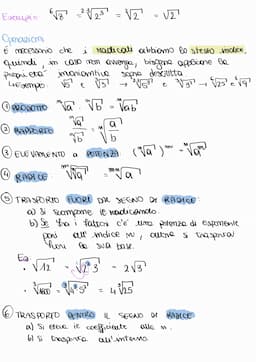 Esempio: ⁶√8 = ²·³√2³ = ²√2 = √2
Operazioni
È necessario che i radicali abbiano lo stesso indice,
quindi, in caso non avvenga, bisogna applicare la
proprietà invariantiva sopra descritta
① PRODOTTO ᵐ√a · ᵐ√b = ᵐ√ab
② RAPPORTO ᵐ√a / ᵐ√b = ᵐ√(a/b)
③ ELEVAMENTO A POTENZA (ᵐ√a)ᵐ = ᵐ√aᵐ
④ RADICE
⑤ TRASPORTO FUORI DAL SEGNO DI RADICE:
a) Si scompone il radicando.
b) Se tra i fattori c'è una potenza di esponente
pari all'indice m, allora si trasporta
fuori la sua base.
Es:
• √12 = √2²3 = 2√3
• = 4 ³√25
⑥ TRASPORTO DENTRO IL SEGNO DI RADICE
a) Si eleva il coefficiente alla n.
b) si trasporta all'interno.